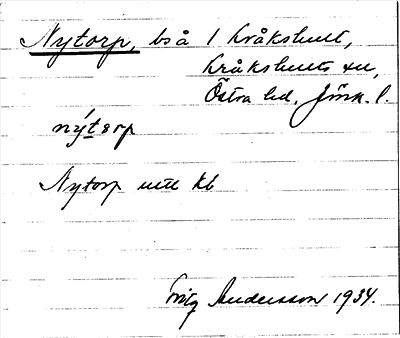 Nytorp, bså 1 Kråkshult,
Kråkshults sn,
Östra hd, Jönk. l.
nýtɔrp
Nytorp utt kb
Fritz Andersson 1934.